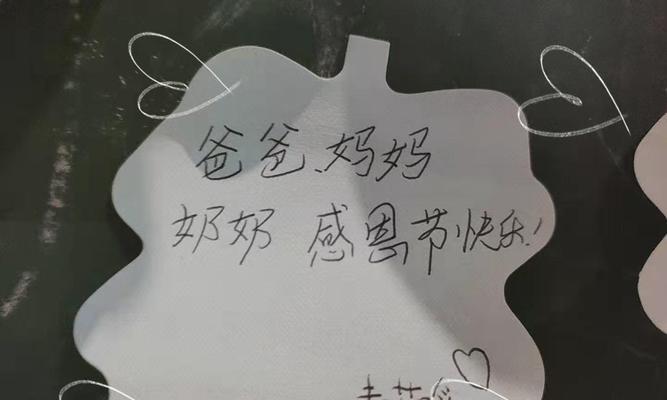 爸爸、妈妈
奶奶 感恩节快乐!